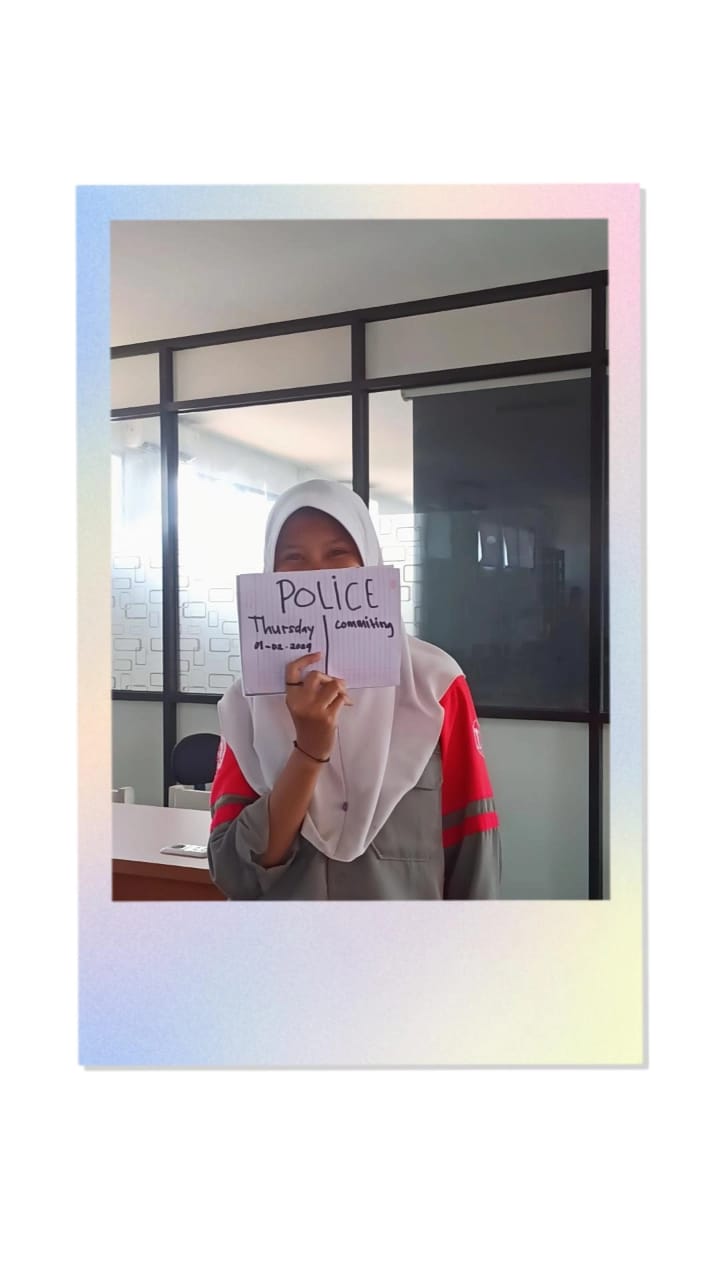 POLICE
Thursday
01-02-2029
commiting